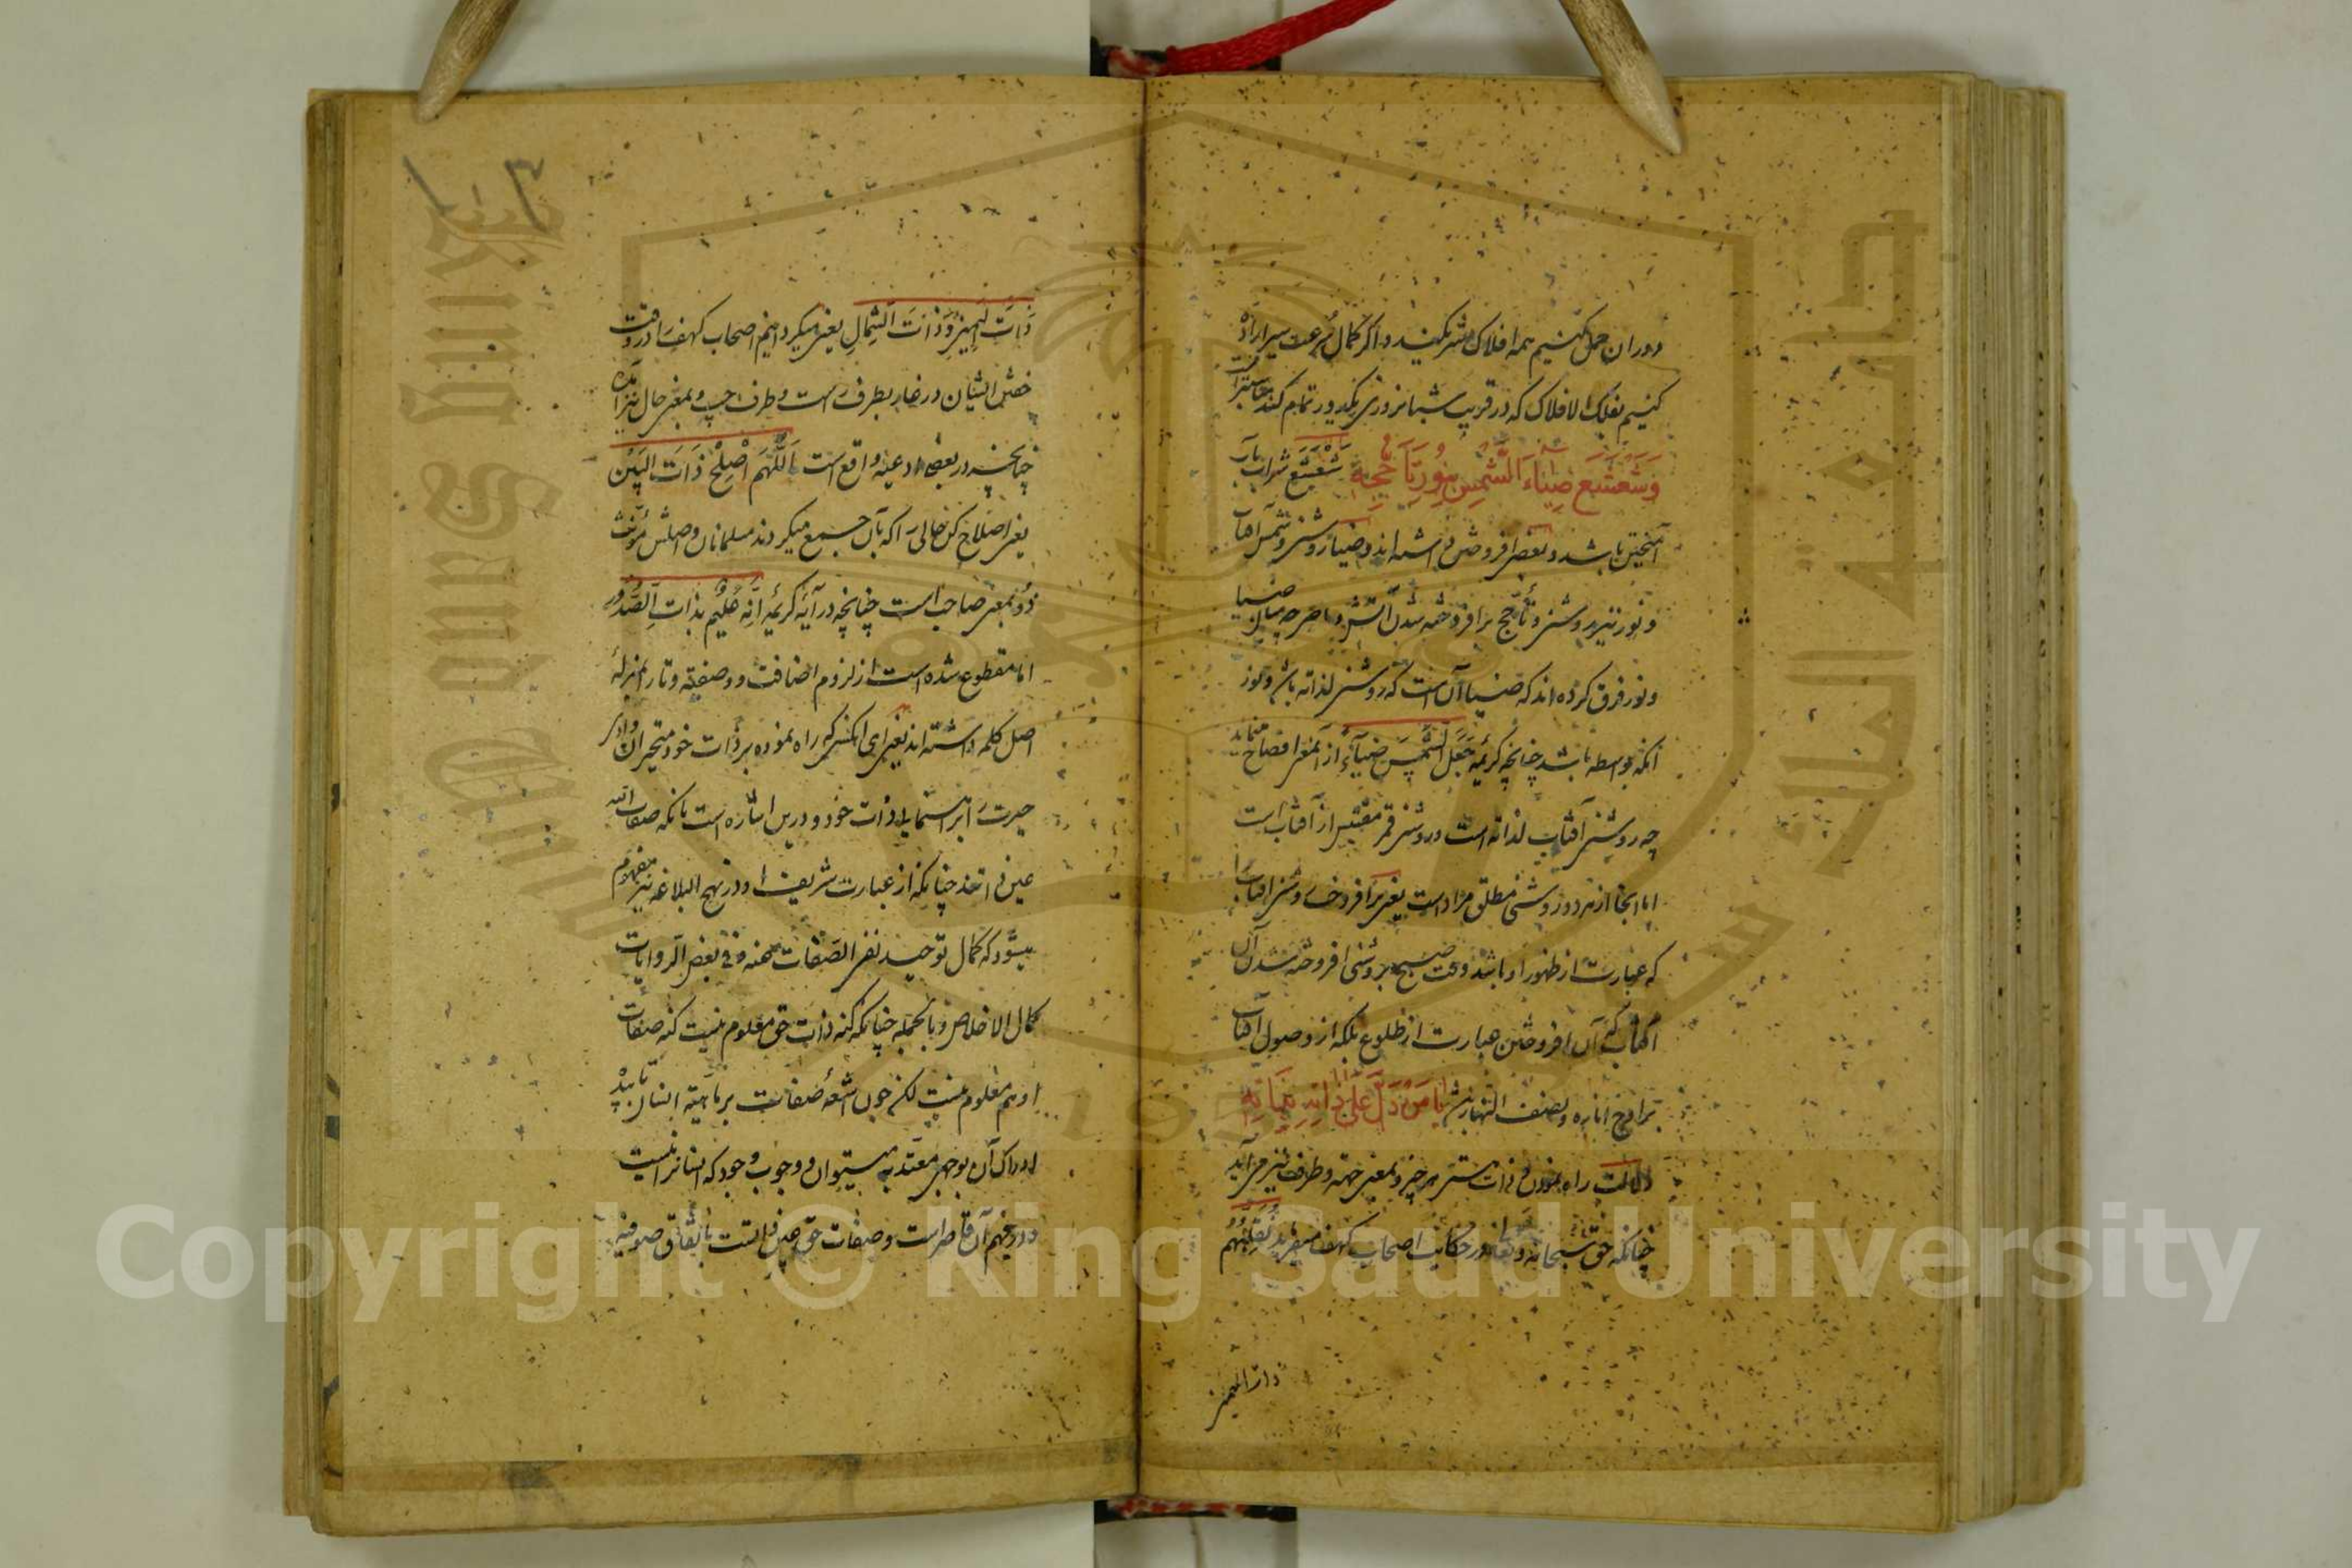 و دوران حمل کنیم همه افلاک مشترکند و اگر کمال سرعت سیر اراده
کنیم بفلک الافلاک که در قریب شبانروزی یکدور تمام کند
وَشَعْشَعَ ضِیاءَ الشَّمْسِ بِنُورِ تَأَجُّجِهِ شعشع شراب بآب
آمیختن باشد و بعضی افروختن دانسته اند و ضیا روشنی و شمس آفتاب
و نور نیز روشنی و تأجج برافروخته شدن آتش و ما صرحه میان ضیا
و نور فرق کرده اند که ضیا آن است که روشنی لذاته باشد و نور
آنکه بواسطه باشد چنانچه کریمه جَعَلَ الشَّمْسَ ضِیآءً از آنمعنی افصاح مینماید
چه روشنی آفتاب لذاته است و روشنی قمر مقتبس از آفتاب است
اما اینجا از هر دو روشنی مطلق مراد است یعنی برافروخت روشنی آفتاب را
که عبارت از ظهور او باشد وقت صبح بروشنی افروخته شدن آن
آفتاب که آن افروختن عبارت از طلوع بلکه از وصول آفتاب
یا مَنْ دَلَّ عَلی ذاتِهِ بِذاتِهِ
دلالت راه نمودن و ذات هستی هر چیز و بمعنی جهته و طرف نیز می آید
چنانکه حق سبحانه و تعالی در حکایت اصحاب کهف میفرماید نُقَلِّبُهُمْ
ذات الیمین
ذاتَ الیمینِ وَ ذاتَ الشِّمالِ یعنی میگردانیم اصحاب کهف را در وقت
خفتن ایشان در غار بطرف راست و طرف چپ و بمعنی حال نیز آمده
چنانچه در بعضی ادعیه واقع است اَللّٰهُمَّ اَصْلِحْ ذاتَ الْبَیْن
یعنی اصلاح کن حالی را که بآن جمع میگردند مسلمانان و اصلش مؤنث
ذو بمعنی صاحب است چنانچه در آیه کریمه اِنَّهُ عَلِیمٌ بِذاتِ الصُّدُور
اما مقطوع شده است از لزوم اضافت و وصفیة و تا را بمنزله
اصل کلمه داشته اند یعنی ای آنکسی که راه نموده بر ذات خود متحیران وادی
حیرت را براستی ذات خود و درین اشاره است بآنکه صفات الله
عین ذاتند چنانکه از عبارت شریف او در نهج البلاغه نیز مفهوم
میشود که کمال توحیده نفی الصفات عنه و فی بعض الروایات
کمال الاخلاص و بالجمله چنانکه کنه ذات حق معلوم نیست کنه صفات
او هم معلوم نیست لکن چون اشعه صفات بر ماهیة انسان تابیده
ادراک آن بوجهی معتد به میتوان و وجوب وجود که انسانرا نیست
در فهم آن قاصر است و صفات حق عین ذاتست باتفاق صوفیه